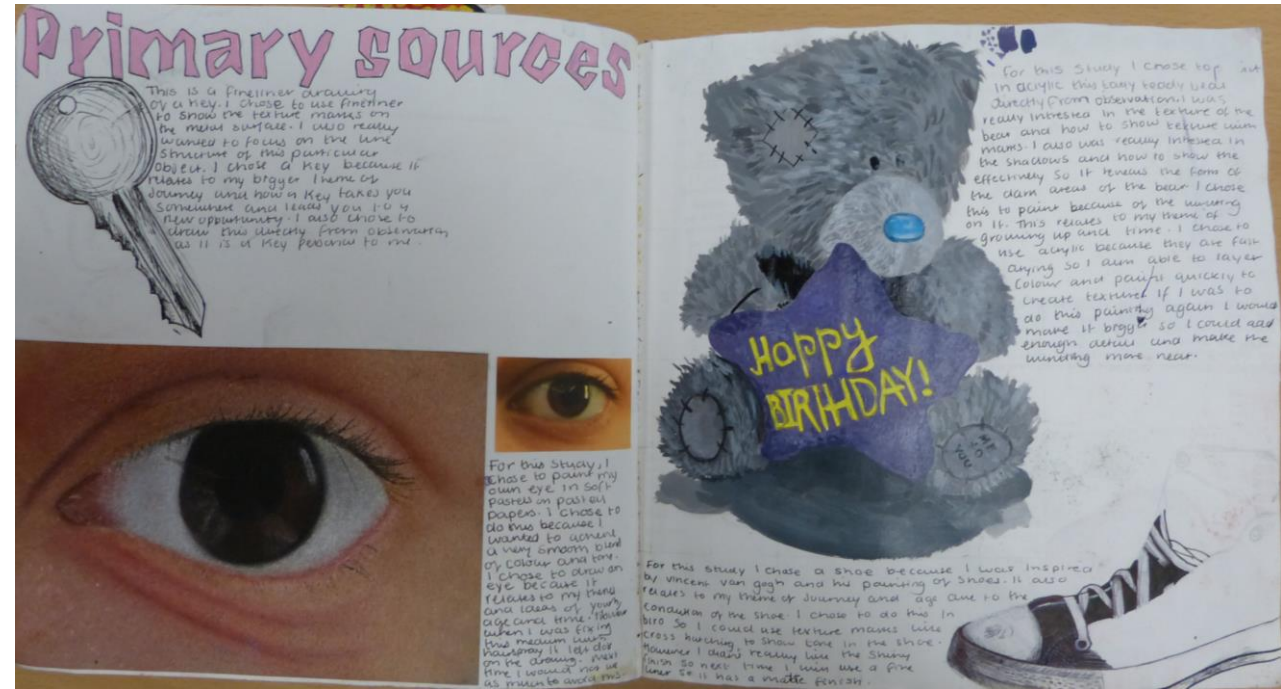 Primary sources
This is a fineliner drawing
of a key. I chose to use fineliner
to show the texture marks on
the metal surface. I also really
wanted to focus on the line
structure of this particular
object. I chose a key because it
relates to my bigger theme of
Journey and how a key takes you
somewhere and leads you to a
new opportunity. I also chose to
draw this directly from observation
as it is a key personal to me.
For this study, I
chose to paint my
own eye in soft
pastels on pastel
papers. I chose to
do this because I
wanted to achieve
a very smooth blend
of colour and tone.
I chose to draw an
eye because it
relates to my theme
and ideas of youth,
age and time.
when I was fixing
this medium with
hairspray it left dots
on the drawing. Next
time I would not use
as much to avoid this.
For this study I chose to
in acrylic this teddy bear
directly from observation. I was
really intrested in the texture of the
bear and how to show texture with
marks. I also was really intrested in
the shadows and how to show the
effectively so it reveals the form of
the dark areas of the bear. I chose
this to paint because of the writing
on it. This relates to my theme of
growing up and time. I chose to
use acrylic because they are fast
drying so I am able to layer
colour and paint quickly to
create texture. If I was to
do this painting again I would
make it bigger so I could add
enough detail and make the
writing more neat.
Happy
BIRTHDAY!
ME
TO
YOU
For this study I chose a shoe because I was inspired
by Vincent van gogh and his painting of shoes. It also
relates to my theme of Journey and age due to the
condition of the shoe. I chose to do this in
biro so I could use texture marks like
cross hatching to show tone in the shoe.
However I didn't really like the shiny
finish so next time I will use a fine
liner so it has a matte finish.